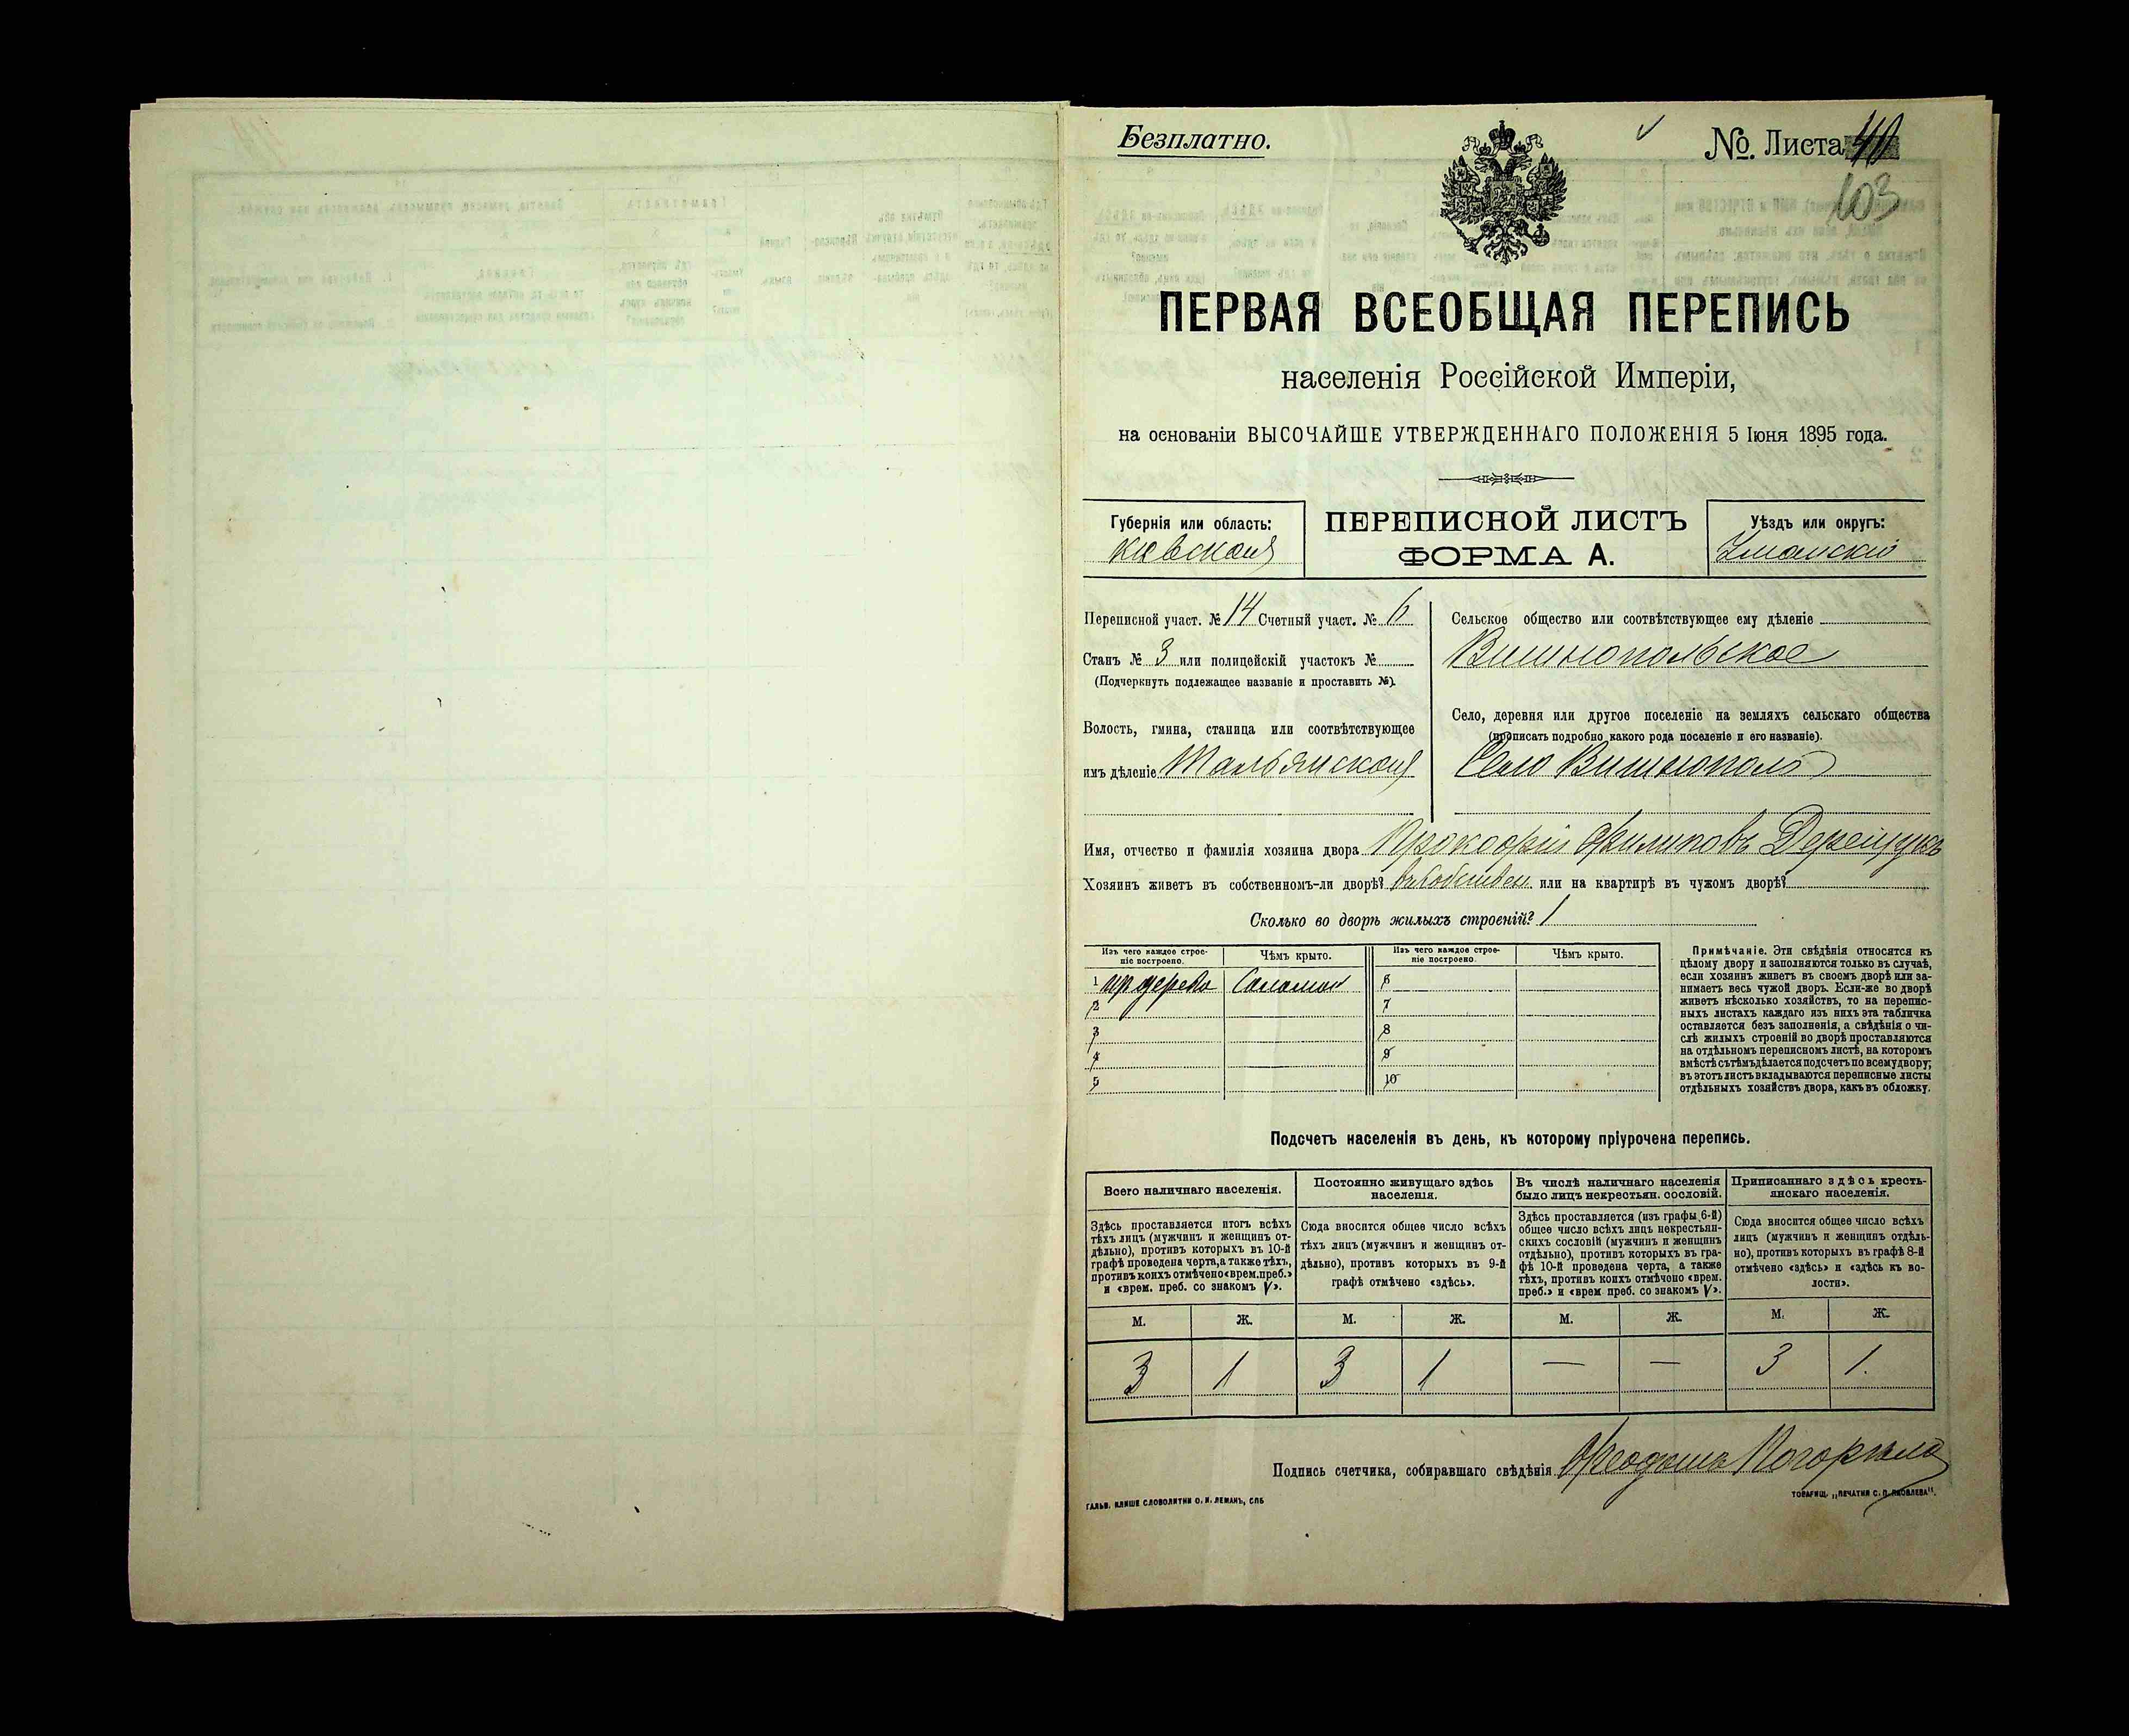 Безплатно.
№. Листа 40
103
ПЕРВАЯ ВСЕОБЩАЯ ПЕРЕПИСЬ
населенія Россійской Имперіи,
на основаніи ВЫСОЧАЙШЕ УТВЕРЖДЕННАГО ПОЛОЖЕНІЯ 5 Іюня 1895 года.
Губернія или область:
Кіевская
ПЕРЕПИСНОЙ ЛИСТЪ
ФОРМА А.
Уѣздъ или округъ:
Уманскій
Переписной участ. № 14 Счетный участ. № 6
Станъ № 3 или полицейскій участокъ №
(Подчеркнуть подлежащее названіе и проставить №).
Волость, гмина, станица или соотвѣтствующее
имъ дѣленіе Тальянская
Сельское общество или соотвѣтствующее ему дѣленіе
Вишнопольское
Село, деревня или другое поселеніе на земляхъ сельскаго общества
(прописать подробно какого рода поселеніе и его названіе).
Село Вишнополь
Имя, отчество и фамилія хозяина двора Прокофій Филиповъ
Хозяинъ живетъ въ собственномъ-ли дворѣ? въ собствен или на квартирѣ въ чужомъ дворѣ?
Сколько во дворѣ жилыхъ строеній? 1
Изъ чего каждое строе-
ніе построено.
Чѣмъ крыто.
Изъ чего каждое строе-
ніе построено.
Чѣмъ крыто.
1 дерева Соломой 6
2 7
3 8
4 9
5 10
Примѣчаніе. Эти свѣдѣнія относятся къ
цѣлому двору и заполняются только въ случаѣ,
если хозяинъ живетъ въ своемъ дворѣ или за-
нимаетъ весь чужой дворъ. Если-же во дворѣ
живетъ нѣсколько хозяйствъ, то на перепис-
ныхъ листахъ каждаго изъ нихъ эта табличка
оставляется безъ заполненія, а свѣдѣнія о чи-
слѣ жилыхъ строеній во дворѣ проставляются
на отдѣльномъ переписномъ листѣ, на которомъ
вмѣстѣ съ тѣмъ дѣлается подсчетъ по всему двору;
въ этотъ листъ вкладываются переписные листы
отдѣльныхъ хозяйствъ двора, какъ въ обложку.
Подсчетъ населенія въ день, къ которому пріурочена перепись.
Всего наличнаго населенія.
Здѣсь проставляется итогъ всѣхъ
тѣхъ лицъ (мужчинъ и женщинъ от-
дѣльно), противъ которыхъ въ 10-й
графѣ проведена черта, а также тѣхъ,
противъ коихъ отмѣчено «врем. преб.»
и «врем. преб. со знакомъ V».
Постоянно живущаго здѣсь
населенія.
Сюда вносится общее число всѣхъ
тѣхъ лицъ (мужчинъ и женщинъ от-
дѣльно), противъ которыхъ въ 9-й
графѣ отмѣчено «здѣсь».
Въ числѣ наличнаго населенія
было лицъ некрестьян. сословій.
Здѣсь проставляется (изъ графы 6-й)
общее число всѣхъ лицъ некрестьян-
скихъ сословій (мужчинъ и женщинъ
отдѣльно), противъ которыхъ въ гра-
фѣ 10-й проведена черта, а также
тѣхъ, противъ коихъ отмѣчено «врем.
преб.» и «врем преб. со знакомъ V».
Приписаннаго здѣсь кресть-
янскаго населенія.
Сюда вносится общее число всѣхъ
лицъ (мужчинъ и женщинъ отдѣль-
но), противъ которыхъ въ графѣ 8-й
отмѣчено «здѣсь» и «здѣсь къ во-
лости».
М. Ж. М. Ж. М. Ж. М. Ж.
3 1 3 1 — — 3 1.
Подпись счетчика, собиравшаго свѣдѣнія
ГАЛЬВ. КЛИШЕ СЛОВОЛИТНИ О. И. ЛЕМАНЪ, СПБ
ТОВАРИЩ. „ПЕЧАТНЯ С. П. ЯКОВЛЕВА".